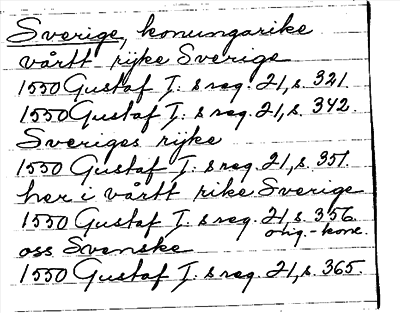 Sverige, konungarike
vårtt rijke Sverige
1550 Gustaf I:s reg. 21, s. 321.
1550 Gustaf I:s reg. 21, s. 342.
Sveriges rijke
1550 Gustaf I:s reg. 21, s. 351.
her i vårtt rike Sverige
1550 Gustaf I:s reg. 21, s. 356.
orig.-konc.
oss Svenske
1550 Gustaf I:s reg. 21, s. 365.